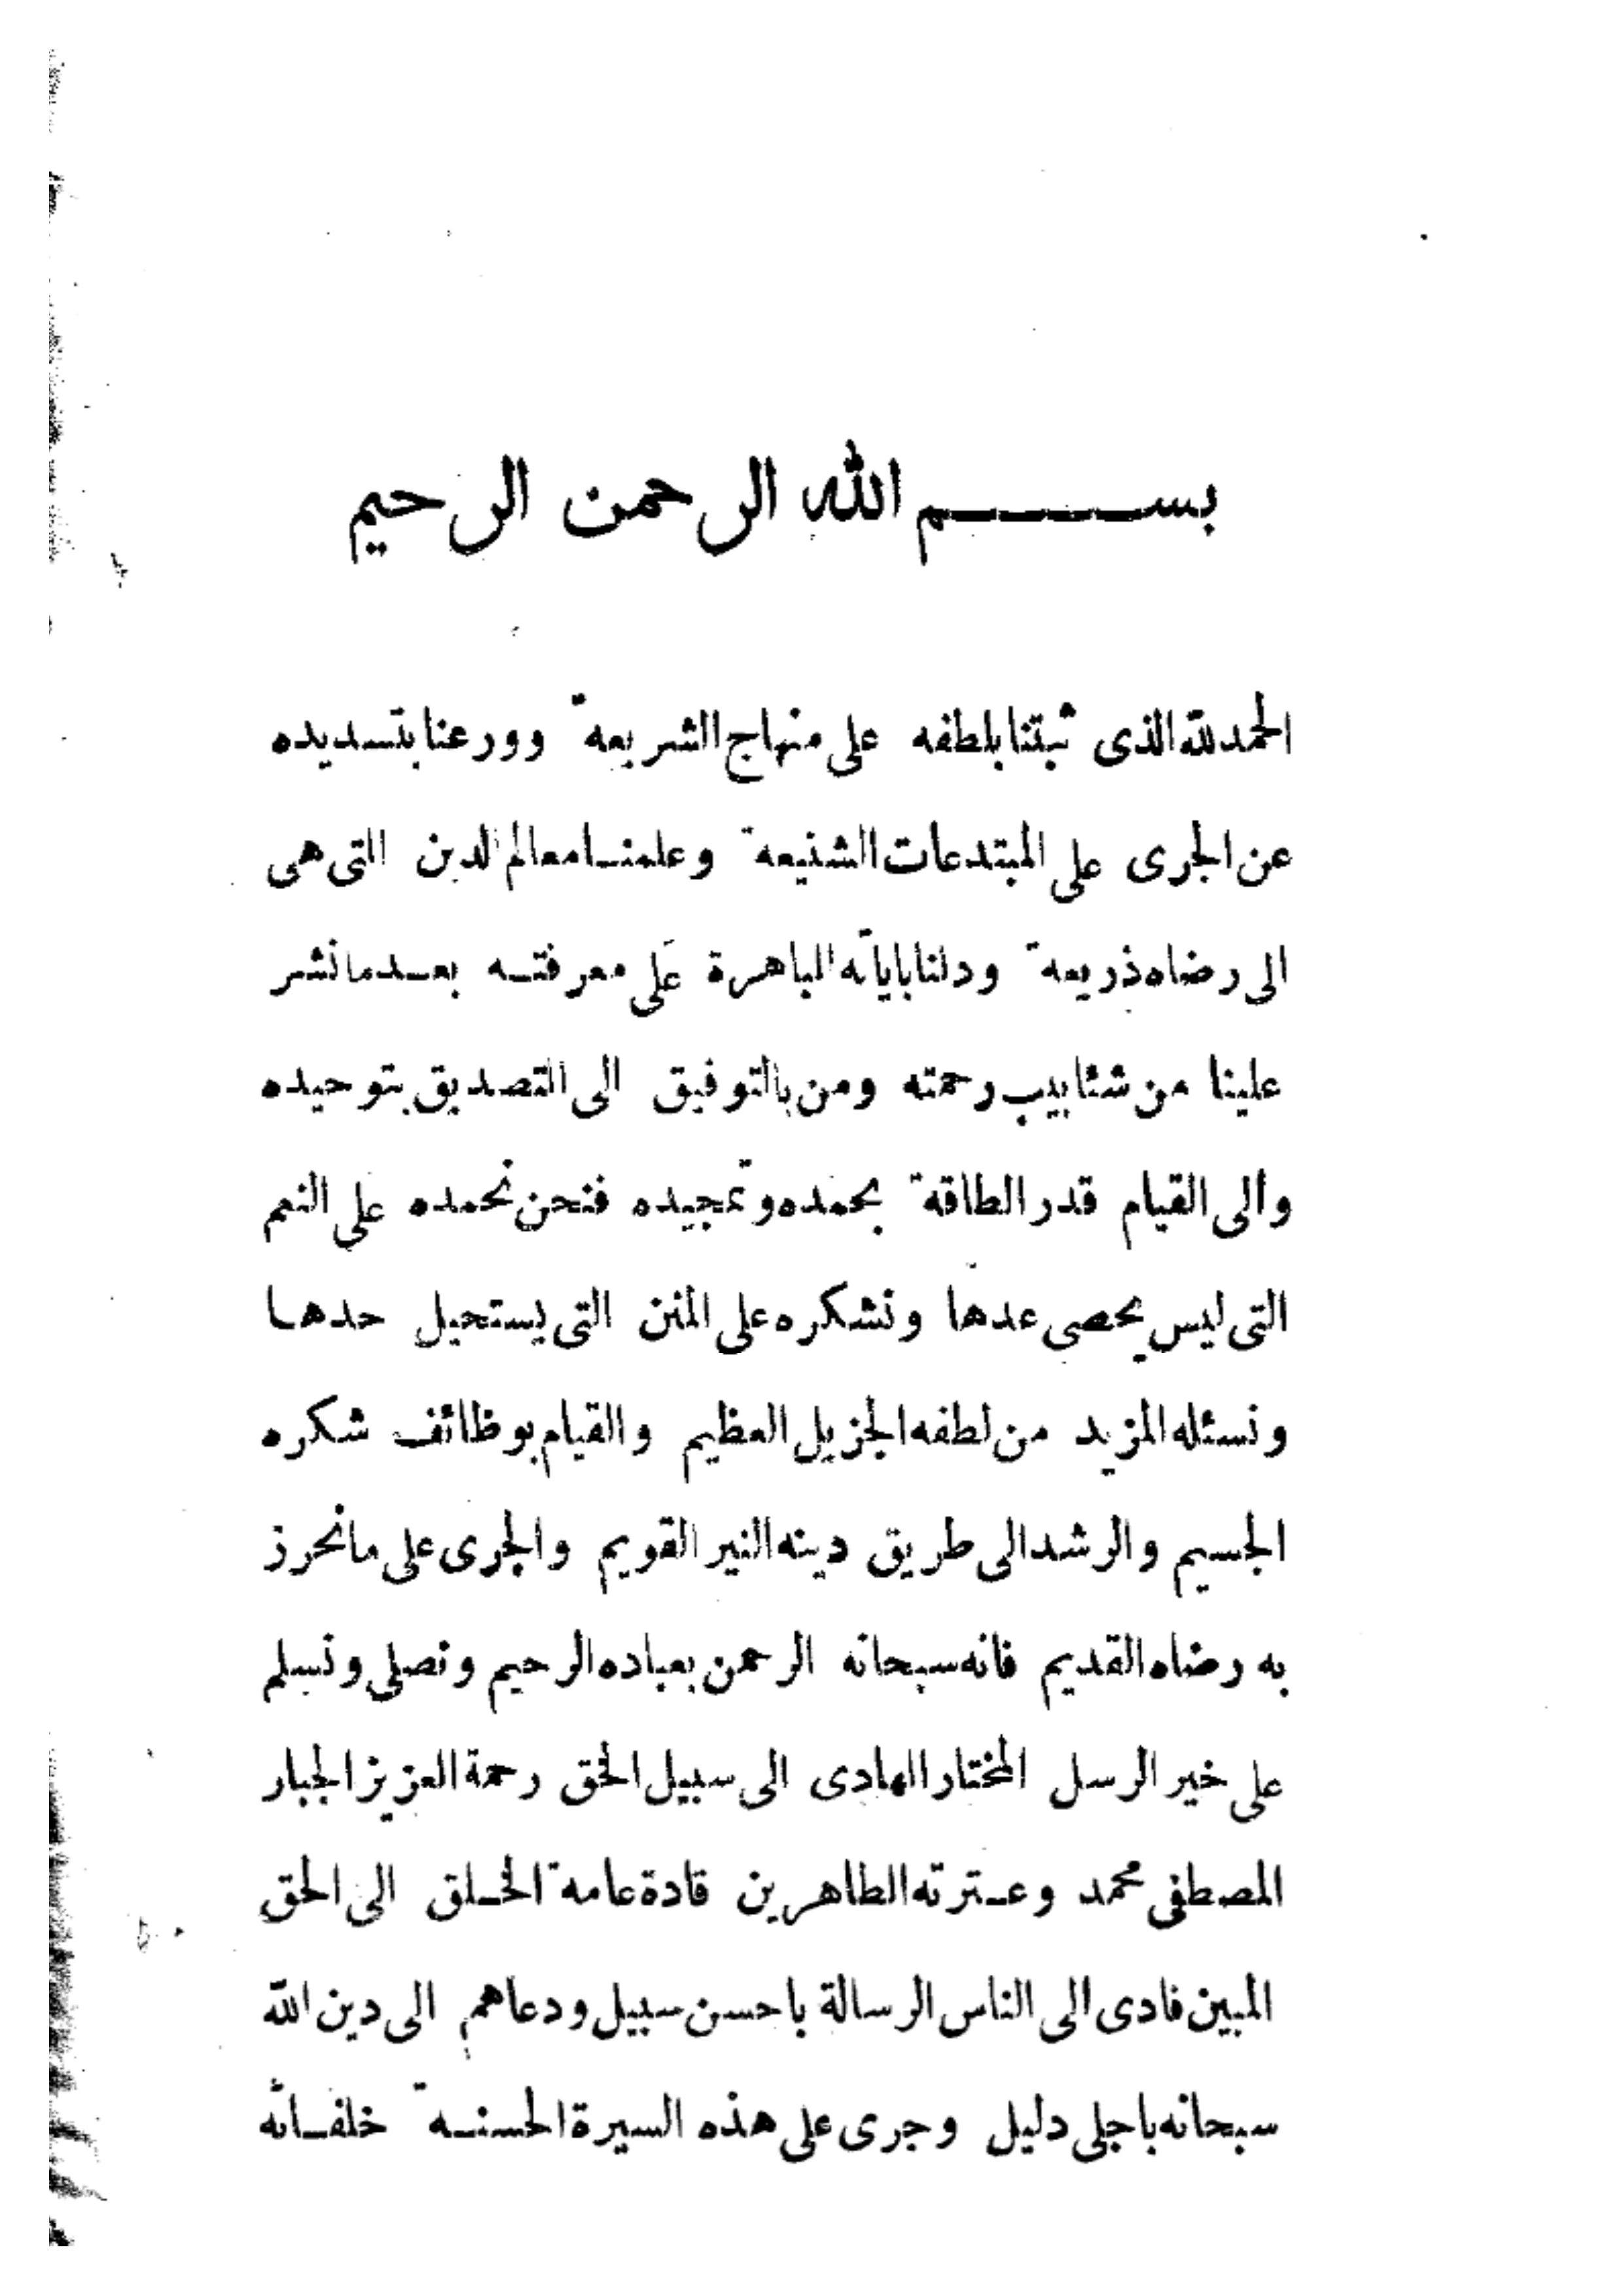 بســـــم الله الرحمن الرحيم
الحمدلله الذى ثبتنا بلطفه على منهاج الشريعة وورعنا بتسديده
عن الجرى على المبتدعات الشنيعة وعلمنا معالم الدين التى هى
الى رضاه ذريعة ودلنا باياته الباهرة على معرفته بعدما نشر
علينا من شئابيب رحمته ومن بالتوفيق الى التصديق بتوحيده
والى القيام قدر الطاقة بحمده وتمجيده فنحن نحمده على النعم
التى ليس يحصى عدها ونشكره على المنن التى يستحيل حدها
ونسئله المزيد من لطفه الجزيل العظيم والقيام بوظائف شكره
الجسيم والرشد الى طريق دينه النير القويم والجرى على ما نحرز
به رضاه القديم فانه سبحانه الرحمن بعباده الرحيم ونصلى ونسلم
على خير الرسل المختار الهادى الى سبيل الحق رحمة العزيز الجبار
المصطفى محمد وعترته الطاهرين قادة عامة الخلق الى الحق
المبين فادى الى الناس الرسالة باحسن سبيل ودعاهم الى دين الله
سبحانه باجلى دليل وجرى على هذه السيرة الحسنة خلفائه